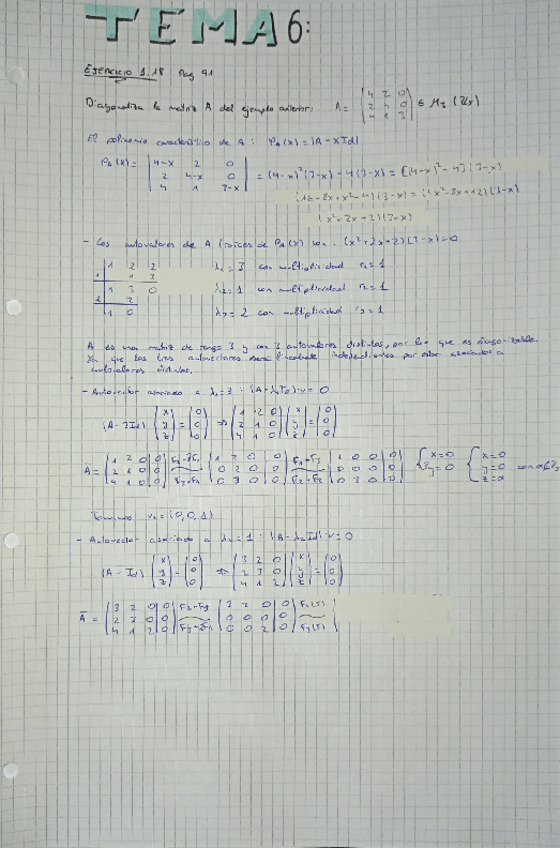 TEMA 6:
EJERCICIO 1.18 Pag 91
Diagonaliza la matriz A del ejemplo anterior: A = |4 2 0| ∈ M₃(ℤ₅)
|2 4 0|
|4 1 3|
El polinomio característico de A: P_A(x) = |A - xId|
P_A(x) = |4-x 2 0| = (4-x)²(3-x) - 4(3-x) = [(4-x)² - 4](3-x)
|2 4-x 0|
|4 1 3-x|
(16-8x+x²-4)(3-x) = (x²-8x+12)(3-x)
(x²+2x+2)(3-x)
- Los autovalores de A (raíces de P_A(x)) son: (x²+2x+2)(3-x)=0
1 2 2
1 1 3
1 3 0
2 2
1 0
λ₁ = 3 con multiplicidad r₁ = 1
λ₂ = 1 con multiplicidad r₂ = 1
λ₃ = 2 con multiplicidad r₃ = 1
A es una matriz de rango 3 y con 3 autovalores distintos, por lo que es diagonalizable
Ya que los tres autovectores linealmente independientes por estar asociados a
autovalores distintos.
- Autovector asociado a λ₁=3: (A-λ₁Id)·v = 0
(A-3Id) |x| = |0| ⇒ |1 2 0| |x| = |0|
|y| |0| |2 1 0| |y| |0|
|z| |0| |4 1 0| |z| |0|
Ā = |1 2 0 0| |1 2 0 0| F₁-F₃ |1 0 0 0| {x=0 {x=0
|2 1 0 0| |0 2 0 0| |0 0 0 0| {3y=0 {y=0
|4 1 0 0| |0 3 0 0| |0 3 0 0| {z=α
Tenemos v₁ = (0,0,1)
- Autovector asociado a λ₂=1: (A-λ₂Id)·v=0
(A-Id) |x| = |0| ⇒ |3 2 0| |x| = |0|
|y| |0| |2 3 0| |y| |0|
|z| |0| |4 1 2| |z| |0|
Ā = |3 2 0 0| |3 2 0 0|
|2 3 0 0| |0 0 0 0|
|4 1 2 0| |0 0 2 0|